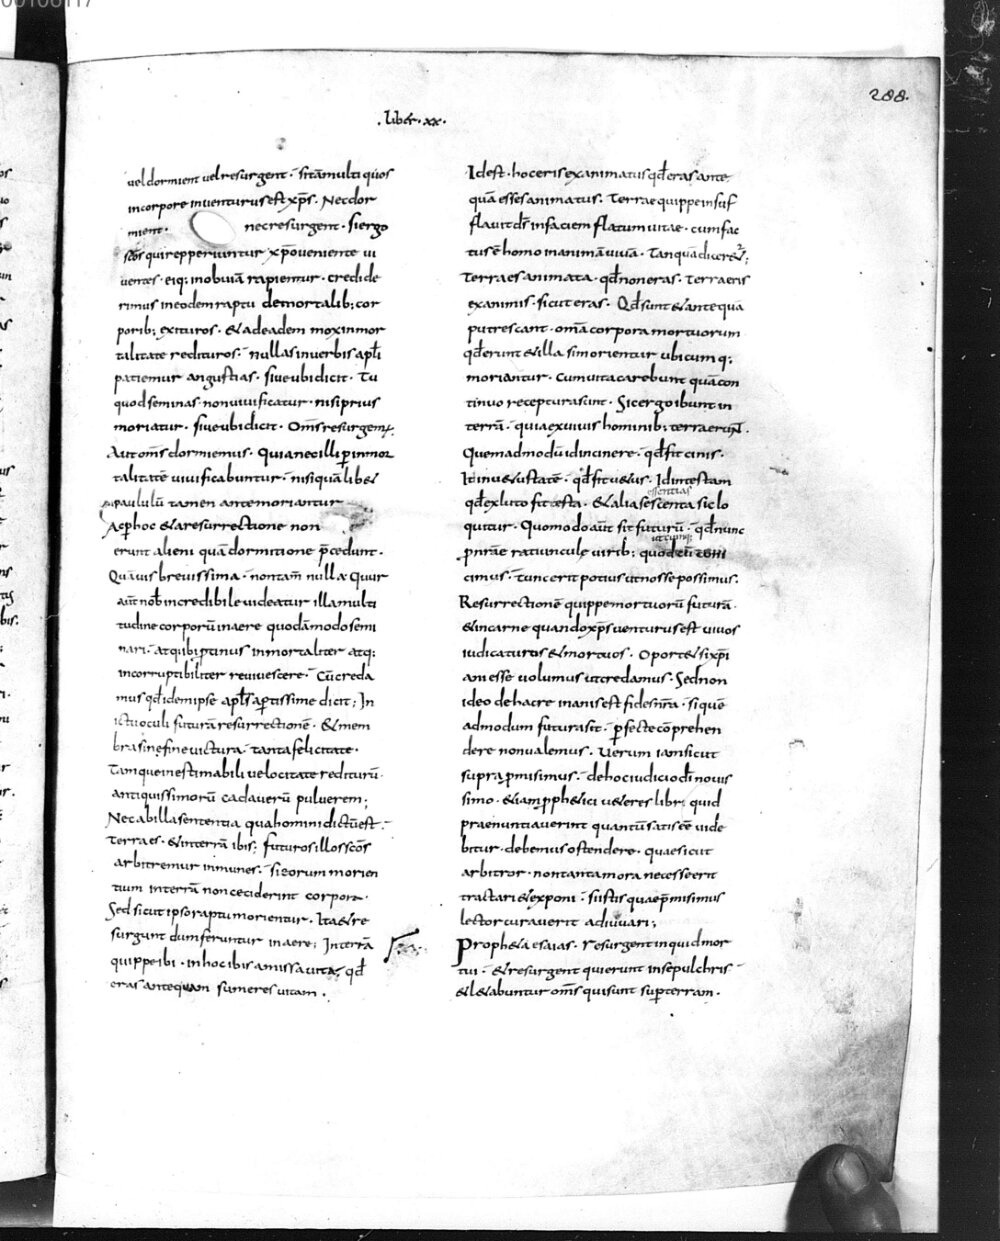 00106117
288.
.liber.xx.
uel dormient uel resurgent. si tā multi quos
in corpore inuenturus est xp̄s. Nec dor
mient. nec resurgent. si ergo
sc̄os qui repperiuntur xp̄o ueniente ui
uentes. eiq; in obuiā rapientur. credide
rimus in eodem raptu de mortalib; cor
porib; exituros. & ad eadem mox inmor
talitate redituros. nullas in uerbis apl̄i
patiemur angustias. siue ubi dicit. Tu
quod seminas. non uiuificatur. nisi prius
moriatur. siue ubi dicit. Om̄s resurgem;.
Aut om̄s dormiemus. Quia nec illi p̄ inmor
talitatē uiuificabuntur. nisi quālibet
paululū tamen ante moriantur
Ac p̄ hoc & a resurrectione non
erunt alieni quā dormitione p̄cedunt.
Quāuis breuissima. non tam̄ nulla. Q cur
aūt nob̄ incredibile uideatur illa multi
tudine corporū in aere quodāmodo semi
nari. atq; ibi protinus inmortaliter atq;
incorruptibiliter reuiuescere. Cū creda
mus qd̄ idem ipse apl̄s ap̄tissime dicit; In
ictu oculi futurā resurrectionē. & in mem
bra sine fine uictura. tanta felicitate.
Tamque inestimabili uelocitate rediturū.
antiquissimorū cadauerū puluerem;
Nec ab illa sententia qua homini dictū est.
Terra es. & in terrā ibis; futuros illos sc̄os
arbitremur inmunes. si eorum morien
tium in terrā non ceciderint corpora.
Sed sicut ipso raptu morientur. Ita & re
surgunt dum feruntur in aere; In terrā
quippe ibi. in hoc ibis amissa uita, qd̄
eras antequam sumeres uitam.
Id est. hoc eris exanimatus qd̄ eras ante
quā esses animatus. Terrae quippe insuf
flauit d̄s in faciem flatum uitae. cum fac
tus ē homo in animā uiuā. Tanquā dicer&;
Terra es animata. qd̄ non eras. Terra eris
exanimis. sicut eras. Qd̄ sunt & antequā
putrescant. om̄a corpora mortuorum
qd̄ erunt & illa si morientur ubicumq;
moriantur. cum uita carebunt quā con
tinuo recepturasunt. Sic ergo ibunt in
terrā. quia ex uiuis hominib; terra erun̄.
Quemadmodū id in cinere. qd̄ fit cinis.
It in uetustatē. qd̄ fit uetus. Id in testam
essentias
qd̄ ex luto fit testa. & alia sescenta sic lo
quitur. Quomodo aūt sit futurū. qd̄ nunc
utcumq;
p̄ nr̄ae ratiuncule uirib; quod cū coni
cimus. tunc erit potius ut nosse possimus.
Resurrectionē quippe mortuorū futurā.
& in carne quando xp̄s uenturus est uiuos
iudicaturos & mortuos. Oport& si xp̄i
ani esse uolumus ut credamus. Sed non
ideo de hac re inanis est fides nr̄a. si quē
admodum futura sit. p̄fecte cōprehen
dere non ualemus. Uerum iam sicut
supra p̄misimus. de hoc iudicio dī nouis
simo. &iam pph&ici ueteres libri quid
praenuntiauerint quantū satis eē uide
bitur. debemus ostendere. quae sicut
arbitror. non tanta mora necesse erit
tractari & exponi. si istis quae p̄misimus
lector curauerit adiuuari;
Proph&a esaias. resurgent inquid mor
tui. & resurgent qui erunt in sepulchris
& l&abuntur om̄s qui sunt sup̄ terram.